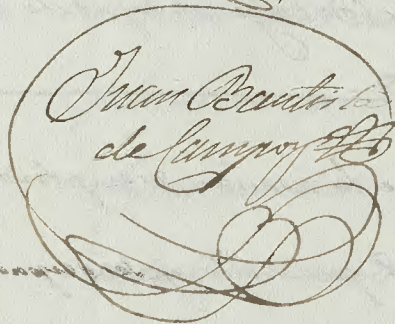 Juan Bautista
de Campos